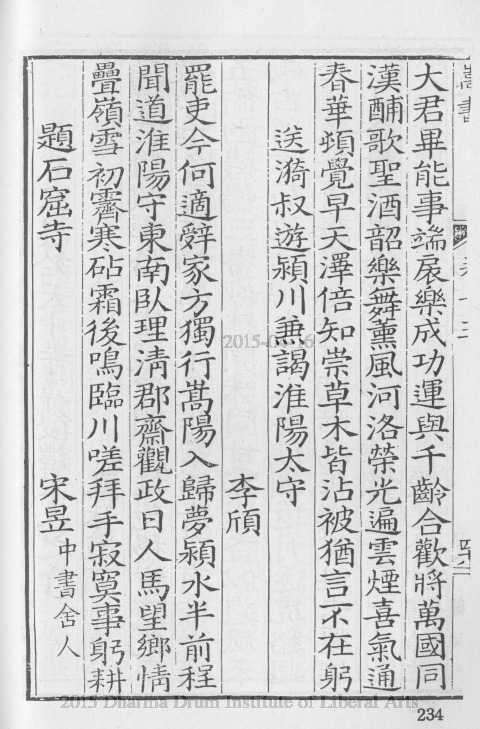 嵩書
大君畢能事端扆樂成功運與千齡合歡將萬國同
漢酺歌聖酒韶樂舞薰風河洛榮光遍雲煙喜氣通
春華頓覺早天澤倍知崇草木皆沾被猶言不在躬
送漪叔遊潁川兼謁淮陽太守
李頎
罷吏今何適辭家方獨行嵩陽入歸夢潁水半前程
聞道淮陽守東南臥理清郡齋觀政日人馬望鄉情
疊嶺雪初霽寒砧霜後鳴臨川嗟拜手寂寞事躬耕
題石窟寺 宋昱 中書舍人
2015-04-16
2015 Dharma Drum Institute of Liberal Arts
234